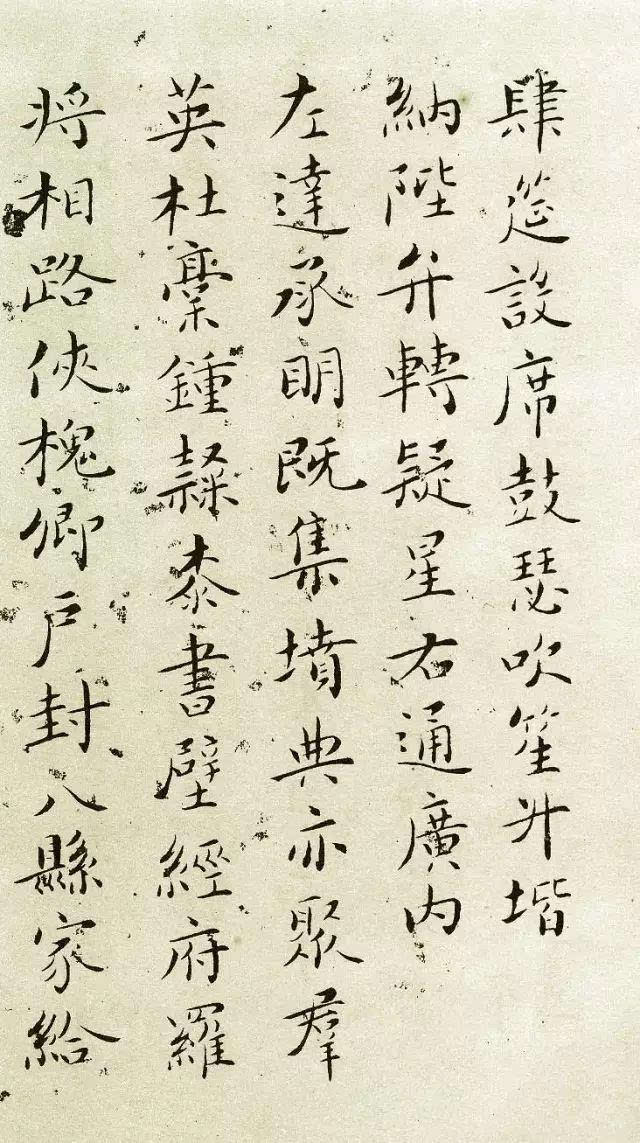 肆筵設席鼓瑟吹笙升堦
納陛弁轉疑星右通廣内
左達承明既集墳典亦聚羣
英杜稾鍾隸柒書壁經府羅
將相路俠槐卿戶封八縣家給